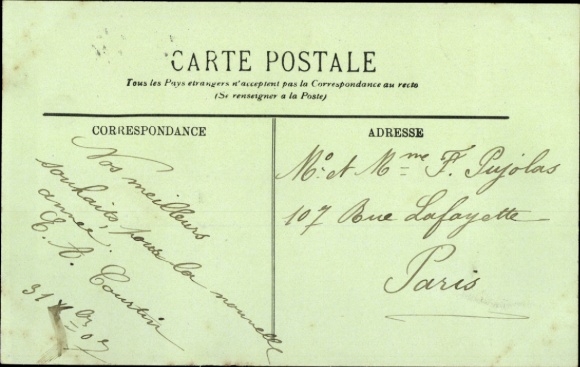 CARTE POSTALE
Tous les Pays étrangers n'acceptent pas la Correspondance au recto
(Se renseigner a la Poste)
CORRESPONDANCE
Nos meilleurs
souhaits, pour la nouvelle
année.
E. A. Courtin
31 Xbre 07
ADRESSE
Mr. et Mme F. Pujolas
107 Rue Lafayette
Paris